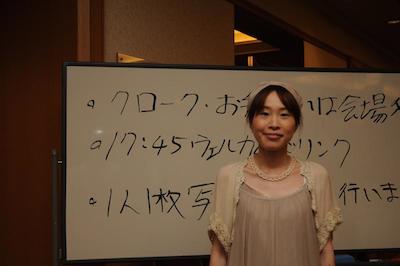 ・クローク・お は会場
・17:45 ウェルカ ドリンク
・1人1枚写 行いま